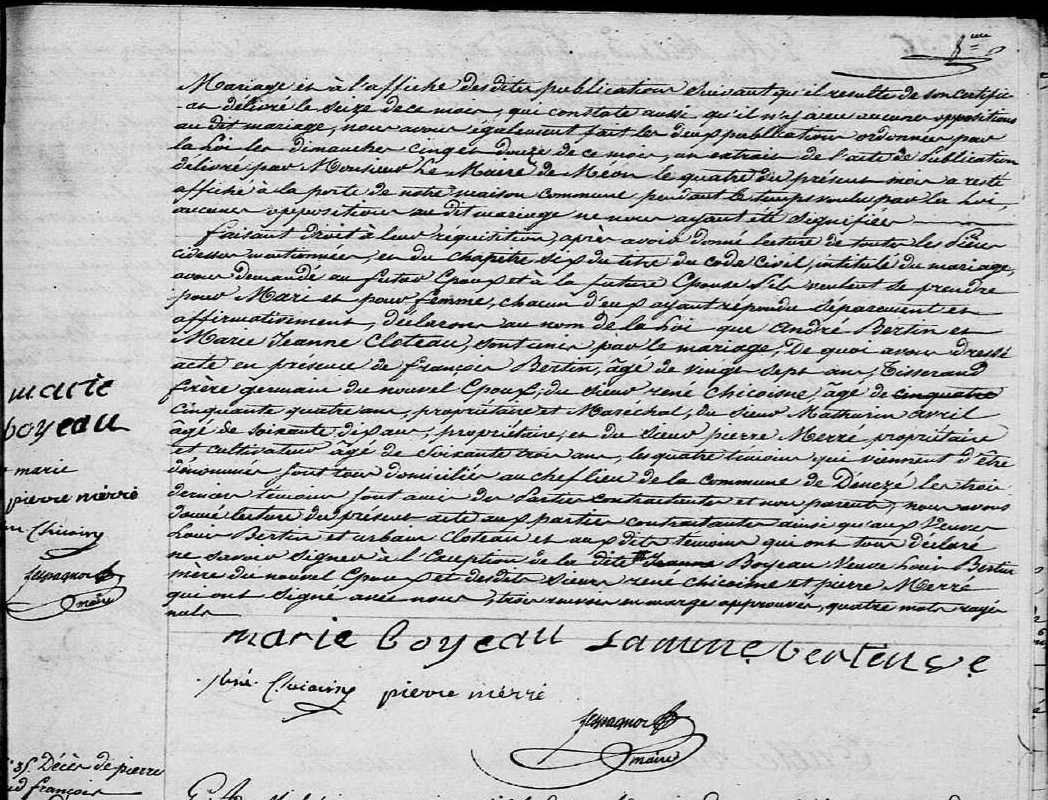 8
Mariage et à l'affiche desdites publications suivant qu'il resulte de son certifi-
cat délivré le seize de ce mois, qui constate aussi qu'il n'y a eu aucunes oppositions
au dit mariage, nous avons également fait les deux publications ordonnées par
la loi les dimanches cinq et douze de ce mois, un extrait de l'acte de Publication
délivré par Monsieur Le Maire de Méon le quatre du présent mois a resté
affiché à la porte de notre maison commune pendant le temps voulu par la loi,
aucunes oppositions au dit mariage ne nous ayant été signifiées
faisant droit à leur réquisition, après avoir donné lecture de toutes les Pièces
cidessus mentionnées, et du chapitre six du titre du code Civil, intitulé du mariage,
avons demandé au futur Epoux et à la future Epouse s'ils veulent se prendre
pour Mari et pour femme, chacun d'eux ayant répondu séparement et
affirmativement, déclarons au nom de la Loi que André Bertin et
Marie Jeanne Cloteau, sont unis par le mariage, De quoi avons dressé
acte en présence de françois Bertin, âgé de vingt sept ans, Tisserand
frère germain du nouvel Epoux, du sieur rené Chicoisne, âgé de cinquatre
cinquante quatre ans, propriétaire et Maréchal, du sieur Mathurin avril
âgé de soixante dix ans, propriétaire, et du sieur pierre Merré propriétaire
et cultivateur âgé de soixante trois ans, les quatre temoins qui viennent d'être
dénommés sont tous domiciliés au chef lieu de la Commune de Déneze les trois
derniers témoins sont amis des Parties contractantes et non parents, nous avons
donné lecture du présent acte aux parties contractantes ainsi qu'aux Veuves
Louis Bertin et urbain Cloteau et aux dits temoins qui ont tous déclaré
ne savoir signer à l'Exception de la dite Jeanne Boyeau Veuve Louis Bertin
mère du nouvel Epoux et desdits Sieurs rené chicoisne et pierre Merré
qui ont signé avec nous, trois renvois en marge approuvés, quatre mots rayés
nuls
marie boyeau
rené Chicoisne pierre merré
maire
marie
boyeau
marie
pierre merré
Chicoisne
maire
Décès de pierre
françois